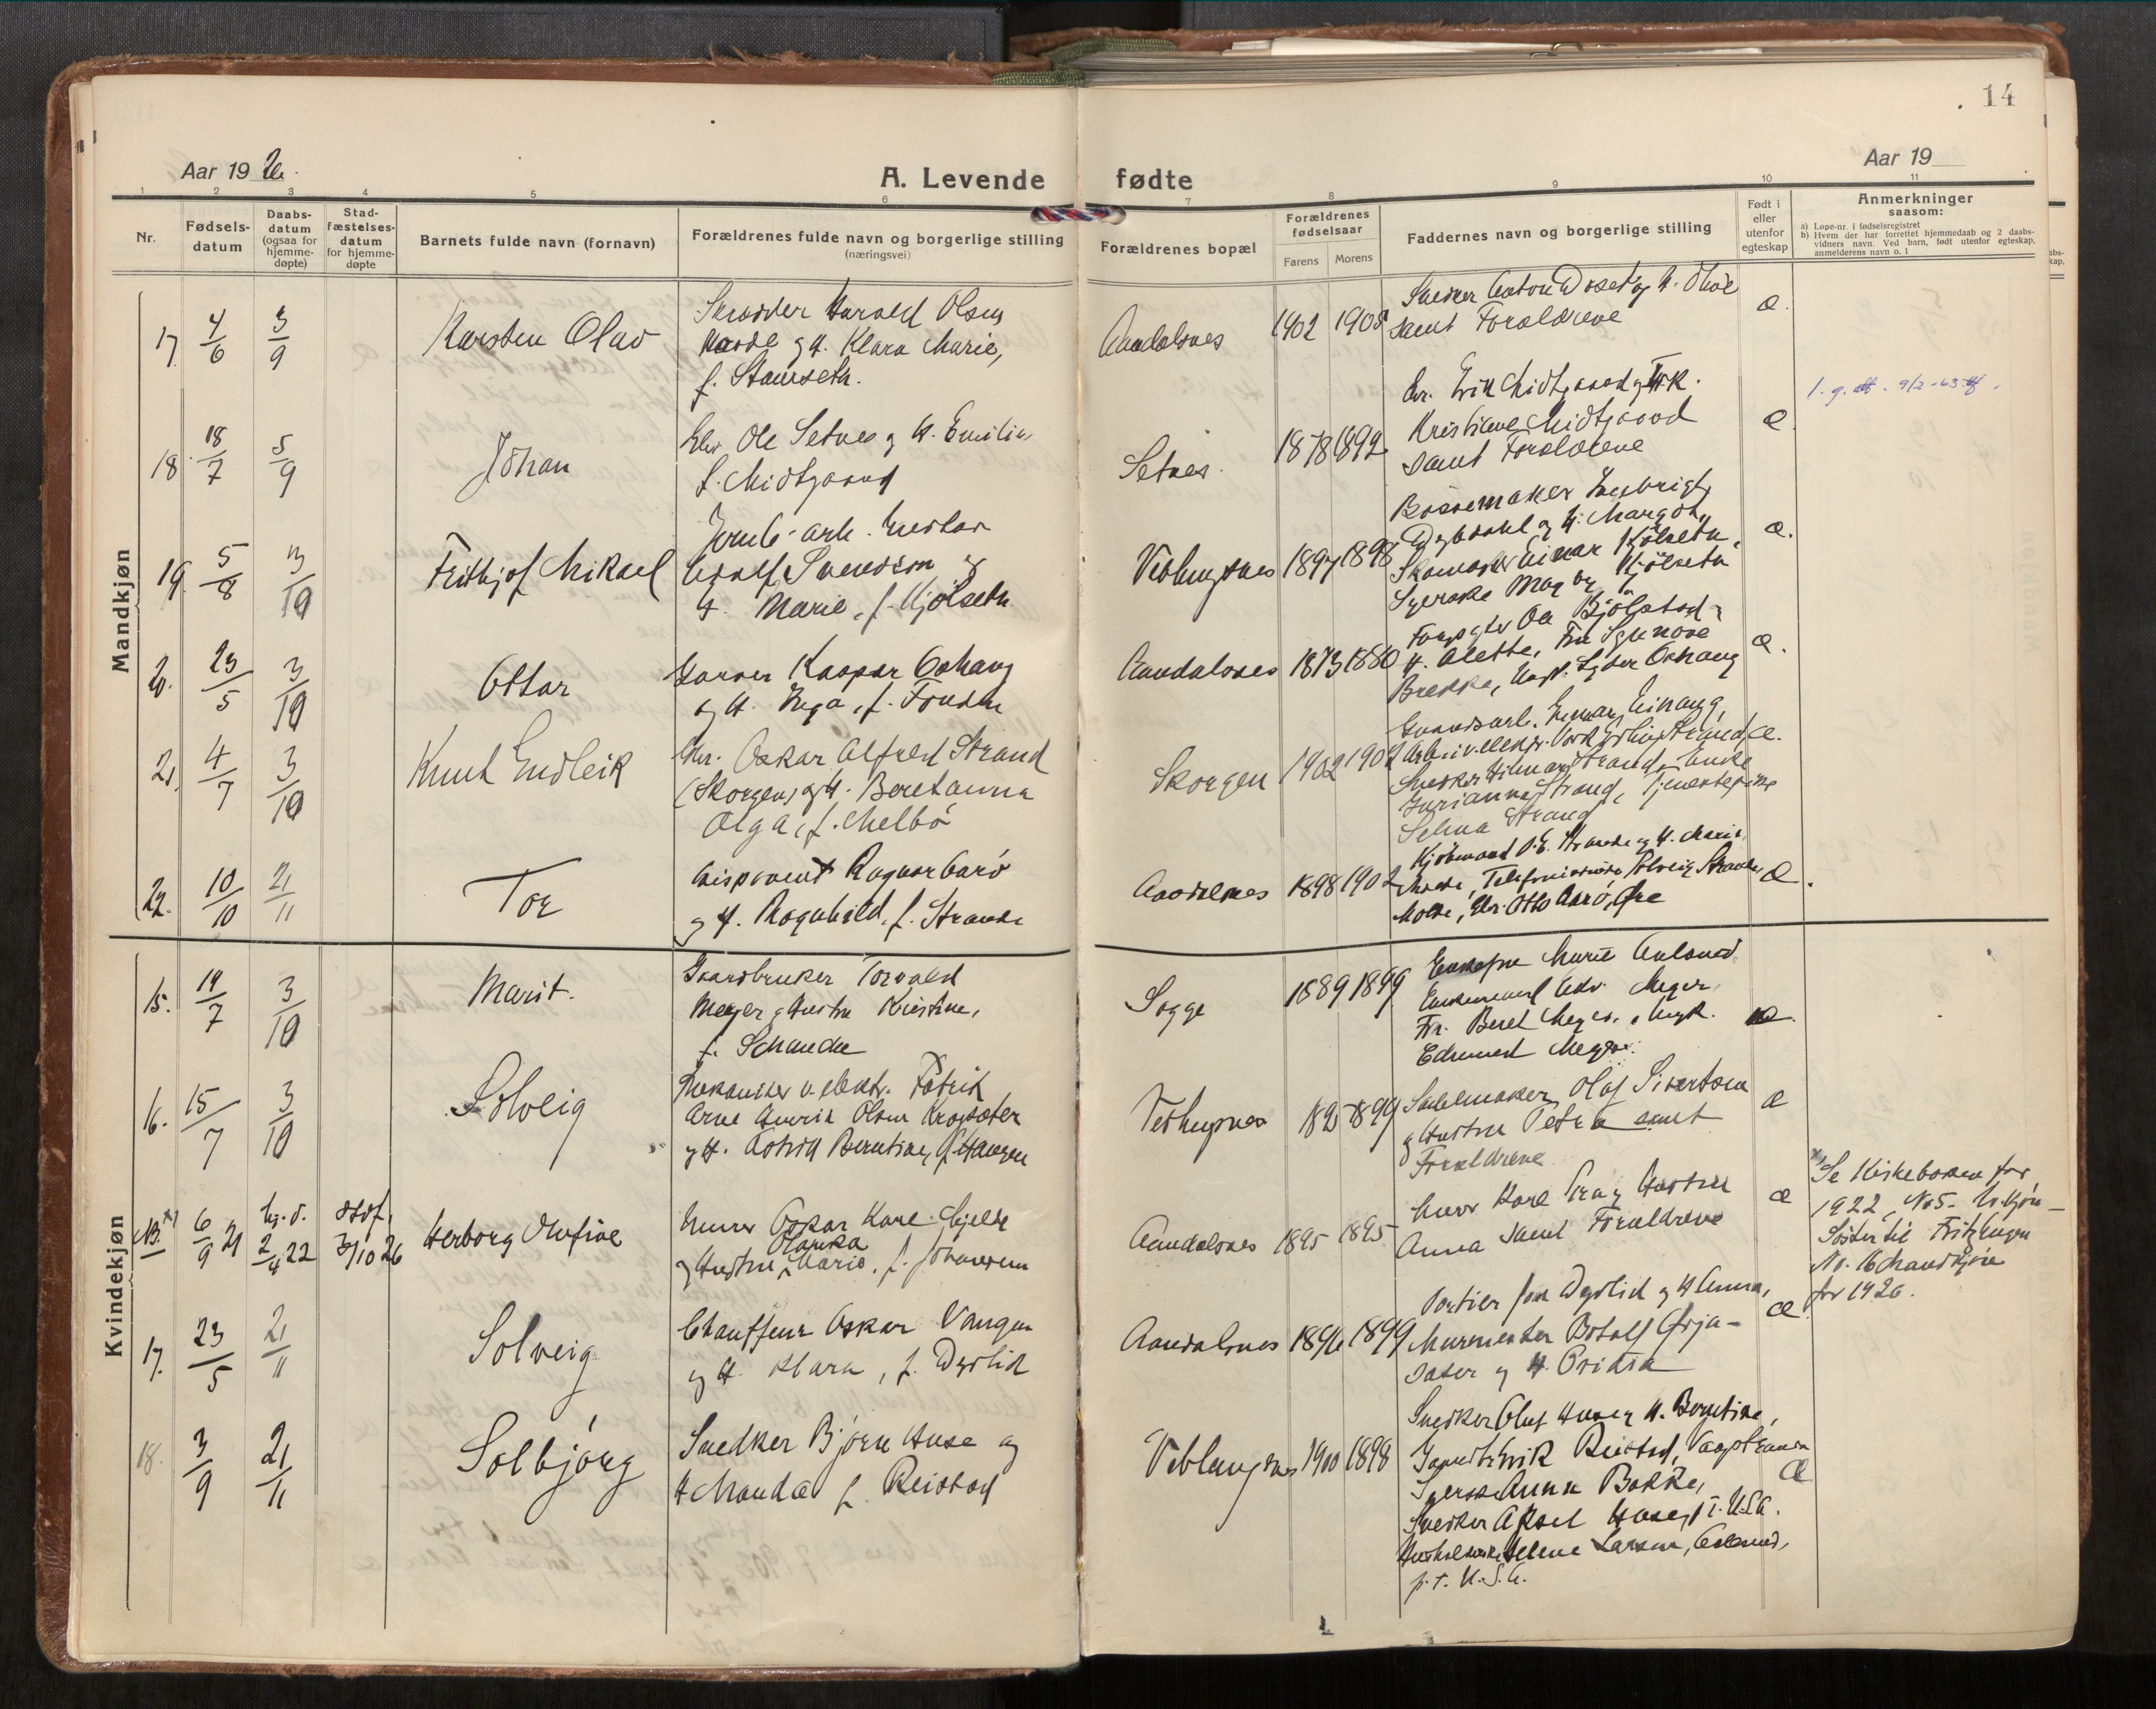 14
Aar 19 26.
A. Levende fødte
Aar 19
1 2 3 4 5 6 7 8 9 10 11
Nr.
Fødsels-
datum
Daabs-
datum
(ogsaa for
hjemme-
døpte)
Stad-
fæstelses-
datum
for hjemme-
døpte
Barnets fulde navn (fornavn)
Forældrenes fulde navn og borgerlige stilling
(næringsvei)
Forældrenes bopæl
Forældrenes
fødselsaar
Farens Morens
Faddernes navn og borgerlige stilling
Født i
eller
utenfor
egteskap
Anmerkninger
saasom:
a) Løpe-nr. i fødselsregistret
b) Hvem der har forrettet hjemmedaab og 2 daabs-
vidners navn. Ved barn, født utenfor egteskap,
anmelderens navn o. l
Mandkjøn
17. 4/6 3/9 Karsten Olav
Skrædder Harald Olsen
og H. Klara Marie,
f. Stamseth.
Aandalsnes 1902 1905
Snekker Anton Doset og H.
samt Forældrene
æ.
18. 18/7 5/9 Johan
Gbr. Ole Setnes og H. Emilie
f. Midtgaard
Setnes. 1878 1892
Gbr. Erik Midtgaard og Frk.
Kristine Midtgaard
samt Forældrene
æ.
9/2-63
19. 5/8 3/10 Frithjof Mikael
Jernb-arb. Gustav
Adolf Svendsen og
H. Marie, f. Kjølseth
Veblungsnes 1897 1898
Bøssemaker Ingebrigt
Dybdahl og H. Margot,
Skomaker Einar Kjølseth,
Syerske Magny Kjølseth
æ.
20. 23/5 3/10 Ottar
Garver Kaspar Oshaug
og H. Inga, f. Frisen
Aandalsnes 1873 1880
Forpagter Ole Bjølstad
H. Alette, Fru Synnøve
Brekke, Ungk. Peder Oshaug
æ.
21. 4/7 3/10 Knut Endleik
Gbr. Oskar Alfred Strand
(Skorgen) og H. Beretanna
Olga, f. Melbø
Skorgen 1902 1902
Grundsarb. Einar Einang,
Arb. v. elektr. verk Erling Strand,
Snekker Hilmar Strand, Enke
Jurianna Strand, Tjenestepike
Selma Strand
æ.
22. 10/10 21/11 Tor
Disponent Ragnar Aarø
og H. Ragnhild, f. Strande
Aandalsnes 1898 1902
Kjøbmand O. E. Strande og H. Marie,
Molde, Telefonistinde Solveig Strande,
Molde, Gbr. Otto Aarø, Øre
æ.
Kvindekjøn
15. 14/7 3/10 Marit.
Gaardbruker Torvald
Meyer og Hustru Kristine,
f. Schancke
Sogge 1889 1899
Enkefru Marie Aalsund
Enkemand Edv. Meyer,
Frk. Beret Meyer, Ungk.
Edmund Meyer.
æ.
16. 15/7 3/10 Solveig
Mekaniker v. elektr. Fabrik
Arne Henrik Olsen Krogsæter
og H. Astrid Berntine, f. Haugen
Veblungsnes 1895 1899
Sadelmaker Olaf Sivertsen
og Hustru Petra samt
Forældrene
æ
NB. x) 6/9 21 hj. d. 2/4 22 stdf. 3/10 26 Herborg Olufine
Murer Oskar Kare Gjelde
Olarika
og Hustru Marie, f. Johansen
Aandalsnes 1895 1895
Murer Kare Pira og Hustru
Anna samt Forældrene
æ
x) Se Kirkeboken for
1922, No 5. Kv.kjøn –
Søster til Fritz Hugen
No. 16 Mandkjøn
for 1926.
17. 23/5 21/11 Solveig
Chauffeur Oskar Vangen
og H. Klara, f. Dyrlid
Aandalsnes 1896 1899
Portier Jon Dyrlid og H. Anna,
Murmester Botolf Grja-
sæter og H. Oridia
æ.
18. 3/9 21/11 Solbjørg
Snedker Bjørn Huse og
H. Manda f. Reistad
Veblungsnes 1900 1898
Snedker Oluf Huse og H. Berntine,
Erik Reistad, Vaagstranda
Syerske Anna Bakke,
Snedker Aksel Huse, p. t. U.S.A.
Husholderske Helene Larsen, Aalesund,
p. t. U.S.A.
æ